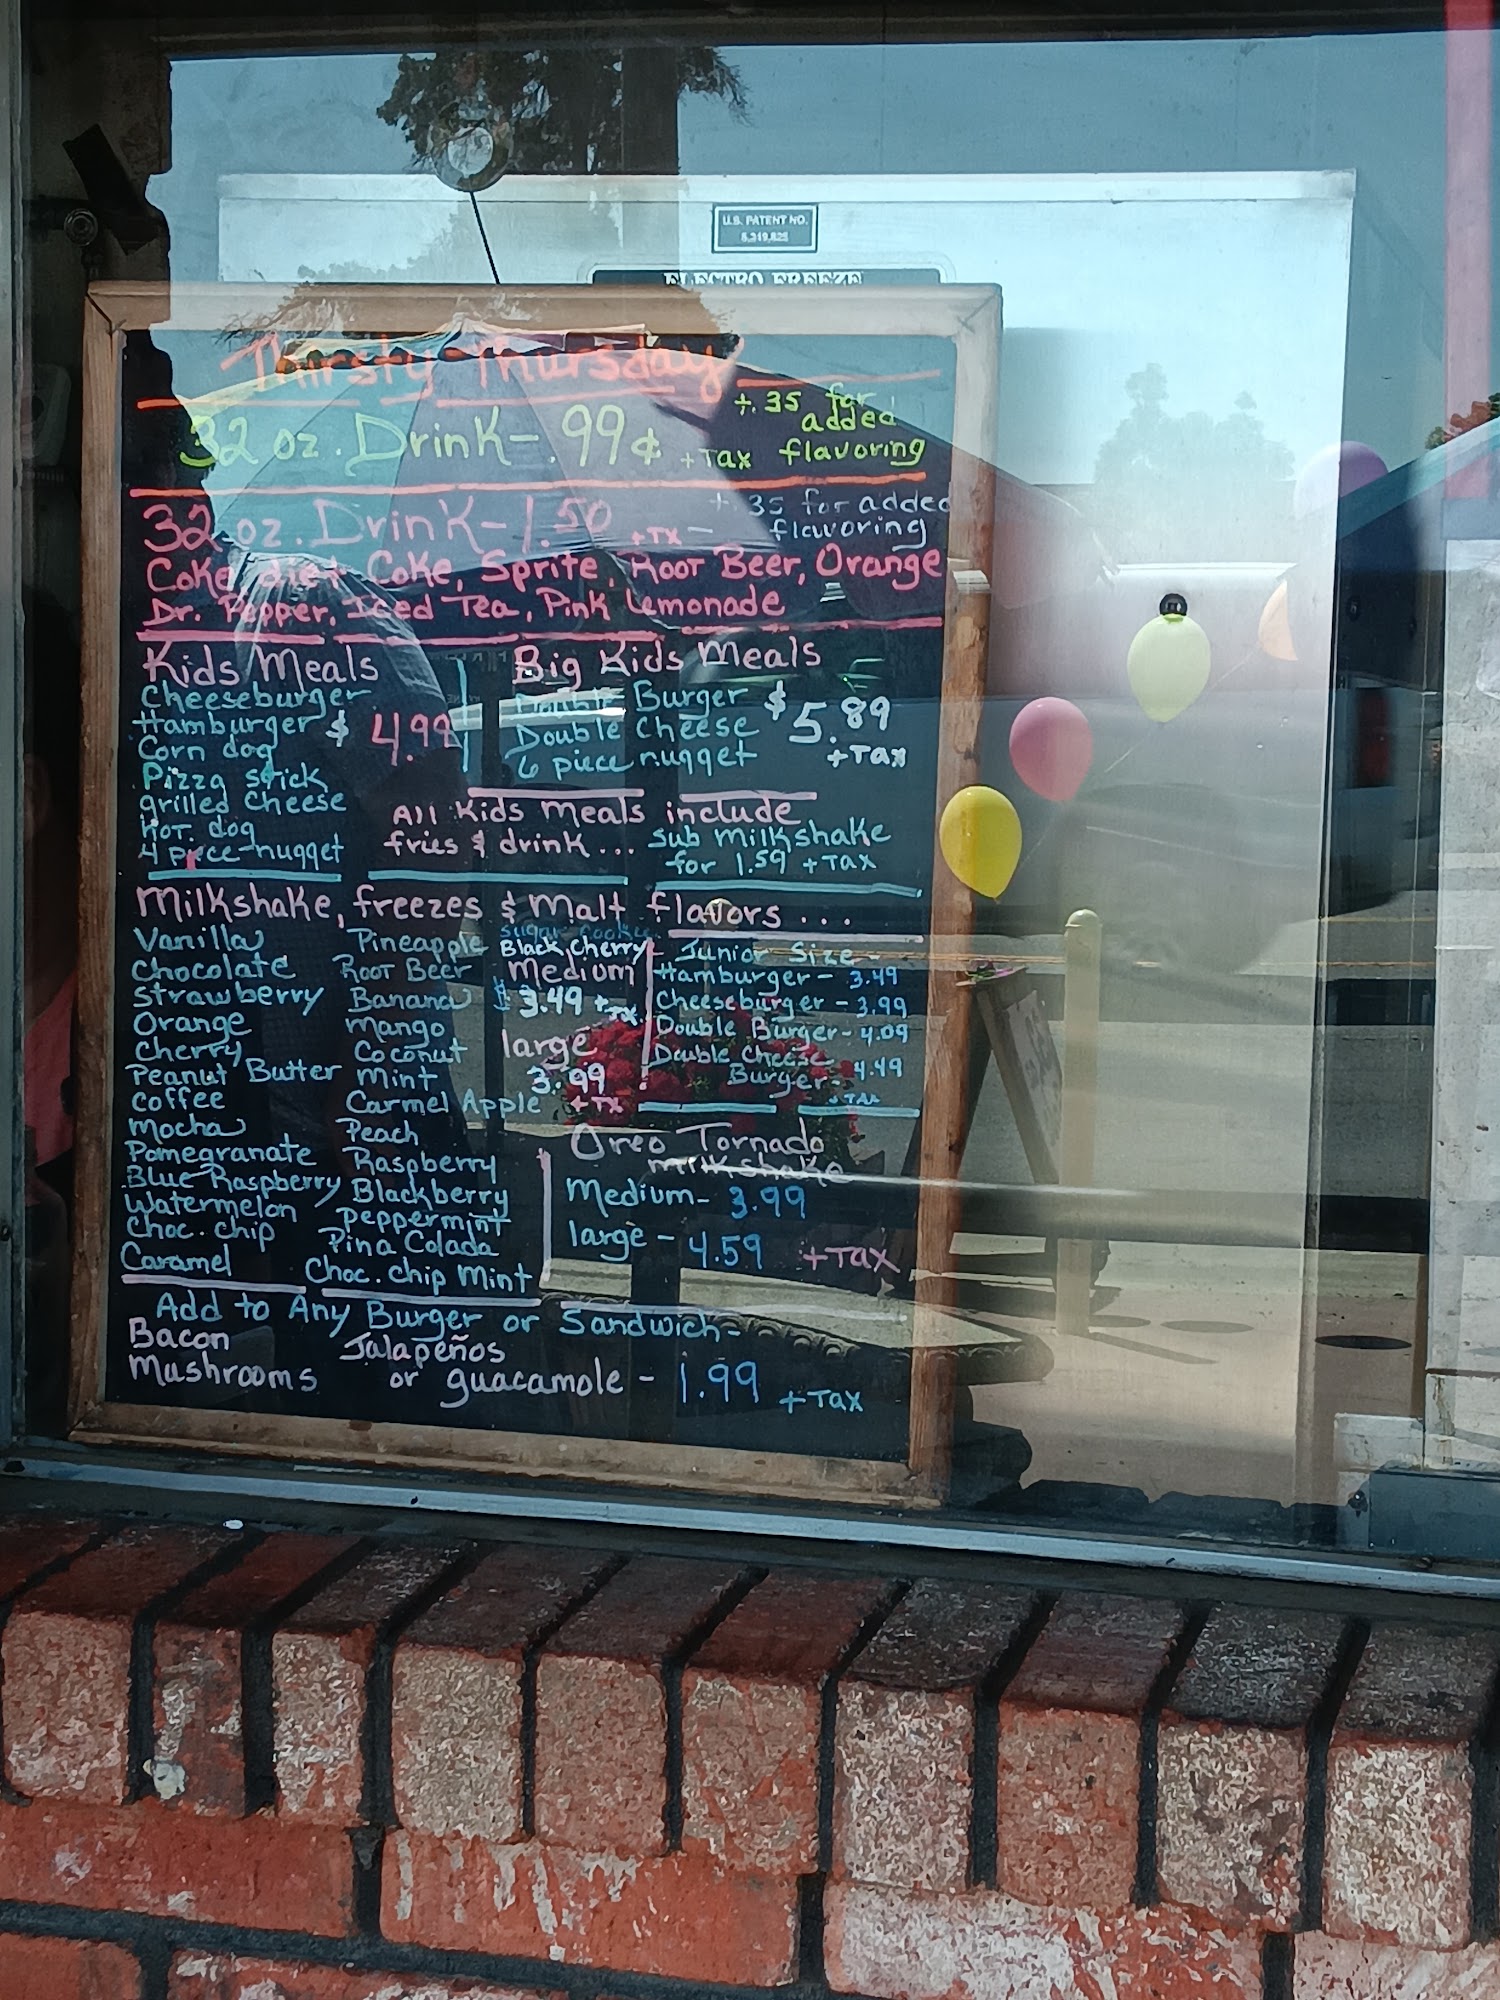 U.S. PATENT NO.
5,319,825
ELECTRO FREEZE
Thirsty Thursday
32 oz. Drink - .99¢ +Tax
+.35 for
added
flavoring
32 oz. Drink - 1.50 +TX
+.35 for added
flavoring
Coke, diet Coke, Sprite, Root Beer, Orange
Dr. Pepper, Iced Tea, Pink Lemonade
Kids Meals
Cheeseburger
Hamburger $ 4.99
Corn dog
Pizza stick
grilled cheese
Hot dog
4 piece nugget
Big Kids Meals
Double Burger
Double Cheese
6 piece nugget
$5.89
+Tax
All Kids meals include
fries & drink... sub milkshake
for 1.59 +Tax
Milkshake, freezes & malt flavors...
Vanilla
Chocolate
Strawberry
Orange
Cherry
Peanut Butter
Coffee
Mocha
Pomegranate
Blue Raspberry
Watermelon
Choc. chip
Caramel
Pineapple
Root Beer
Banana
Mango
Coconut
Mint
Carmel Apple
Peach
Raspberry
Blackberry
Peppermint
Pina Colada
Choc. chip Mint
Sugar Cookie
Black Cherry
Medium
$ 3.49 + TX
large
3.99
+ TX
Junior Size -
Hamburger - 3.49
Cheeseburger - 3.99
Double Burger - 4.09
Double Cheese
Burger - 4.49
+TAX
Oreo Tornado
milkshake
Medium - 3.99
large - 4.59 +Tax
Add to Any Burger or Sandwich -
Bacon Jalapeños
Mushrooms or guacamole - 1.99 +Tax